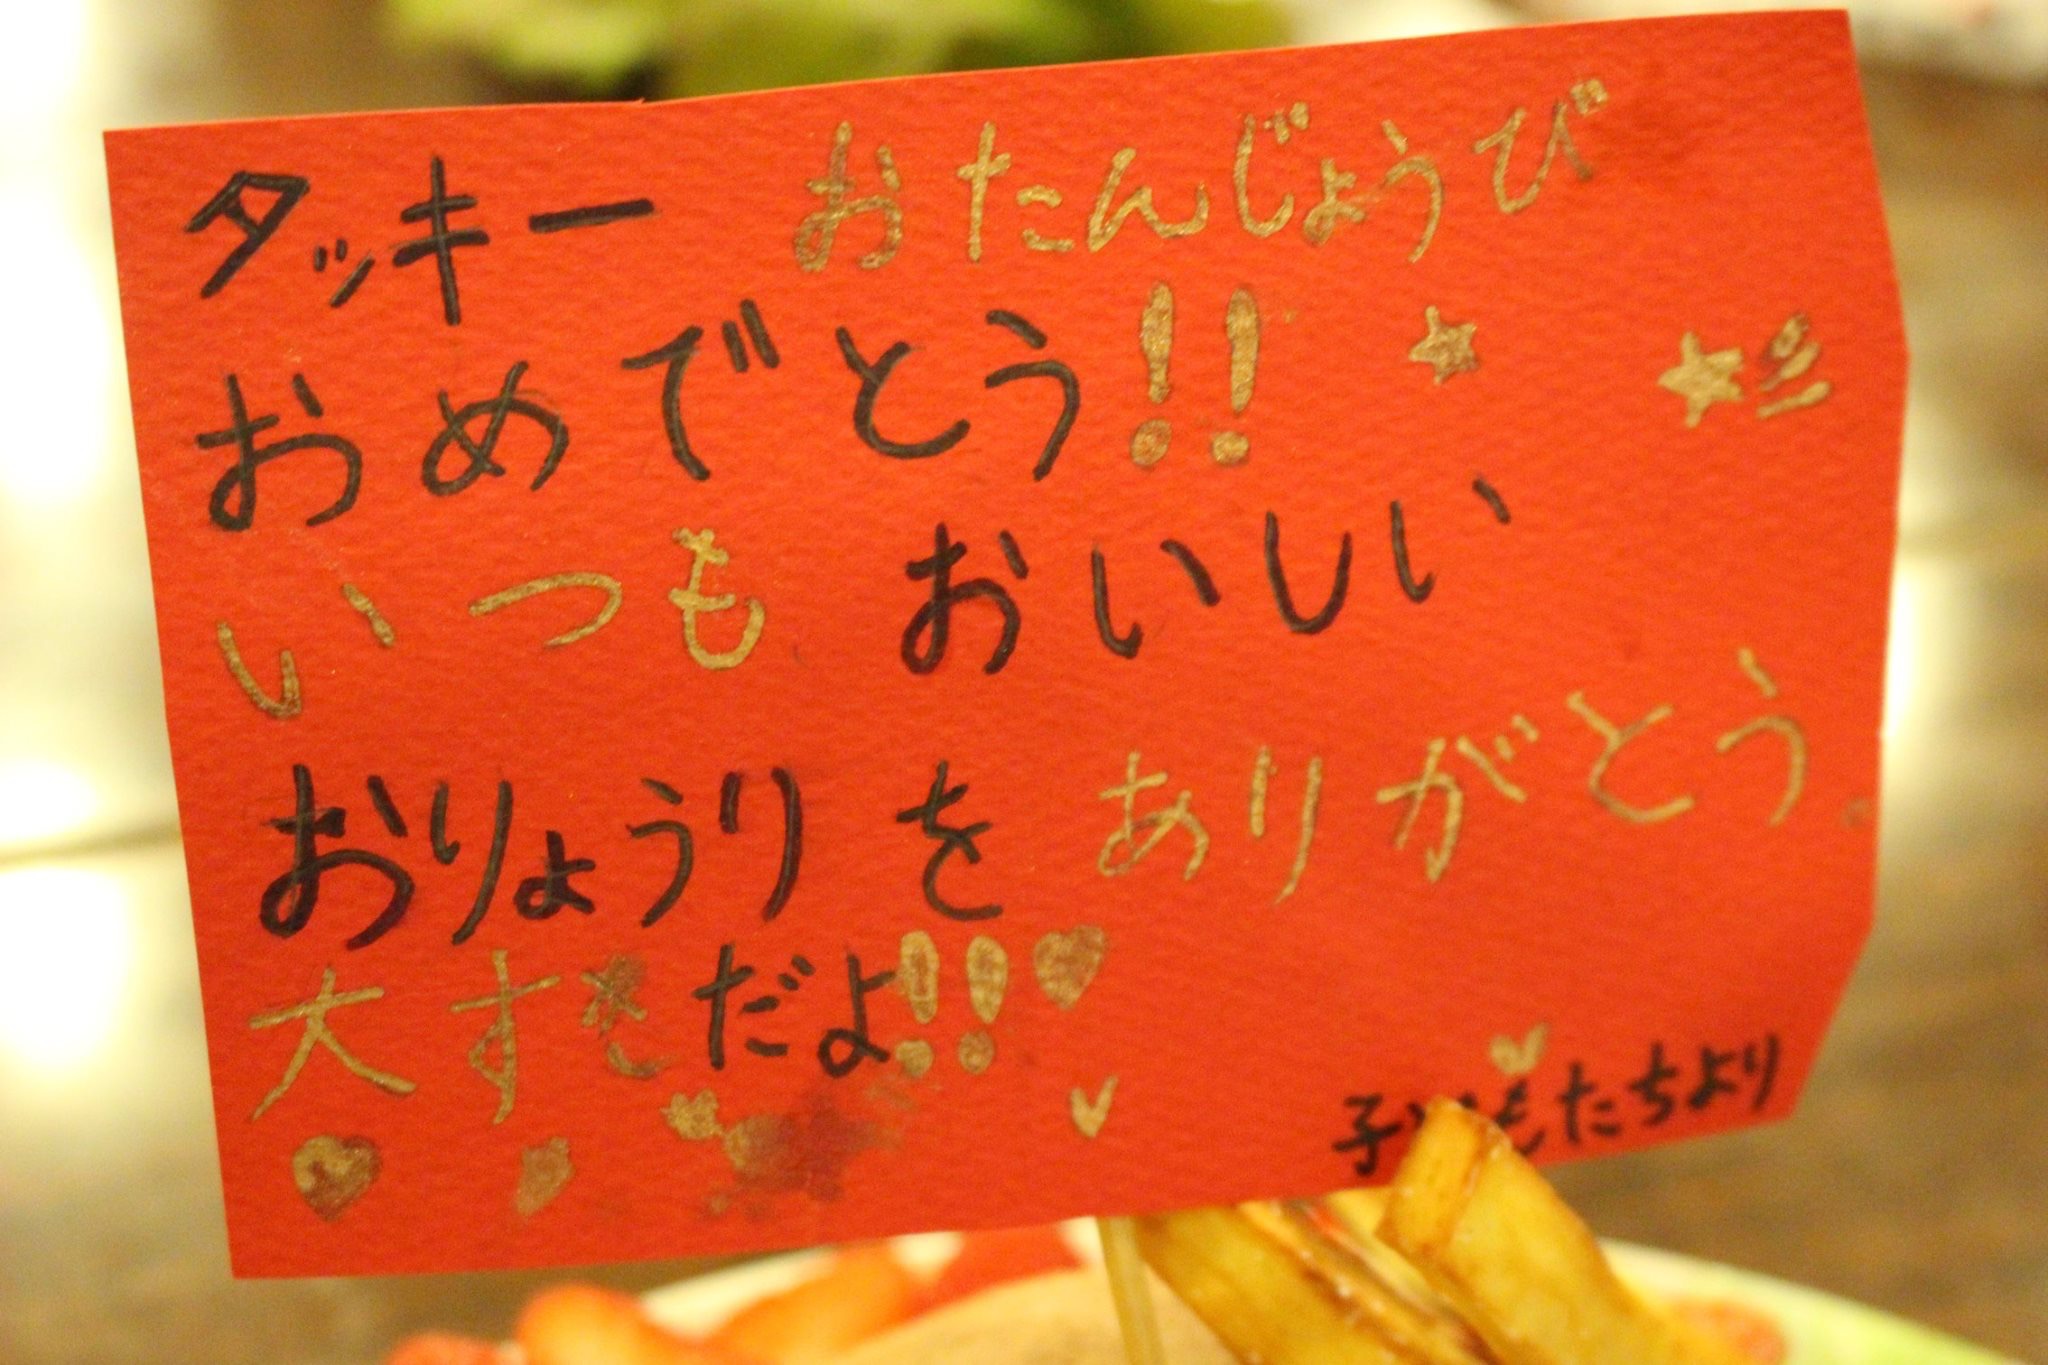 タッキー おたんじょうび
おめでとう!!
いつも おいしい
おりょうりを ありがとう。
大すきだよ!!
子どもたちより